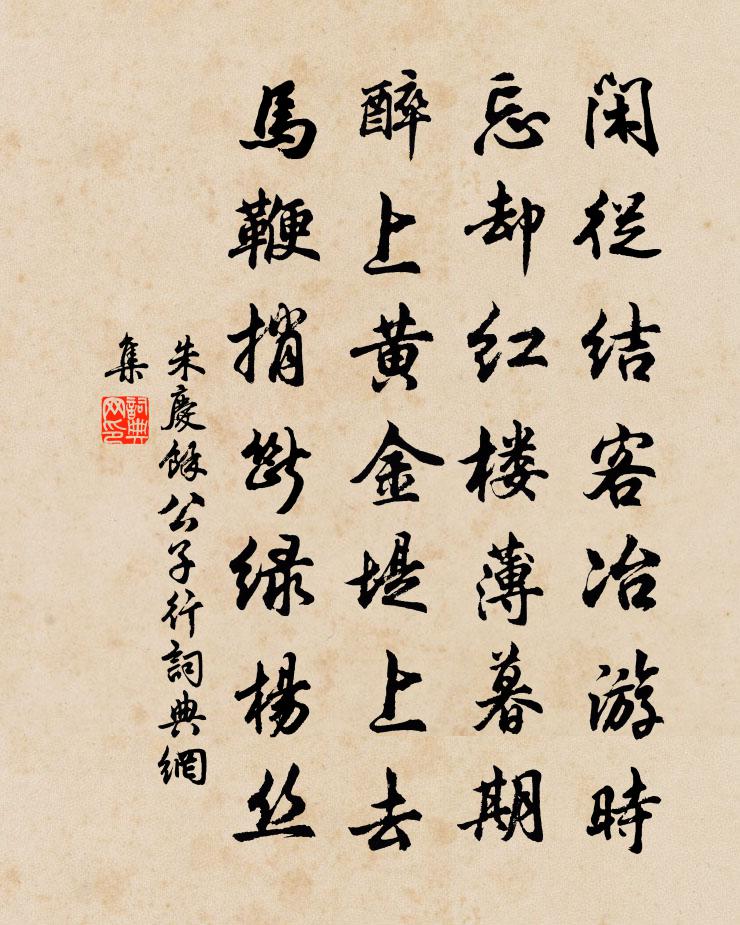 閑從結客冶游時
忘却紅楼薄暮期
醉上黄金堤上去
馬鞭捎斷緑楊丝
朱慶餘公子行詞典網
集
詞典
网印